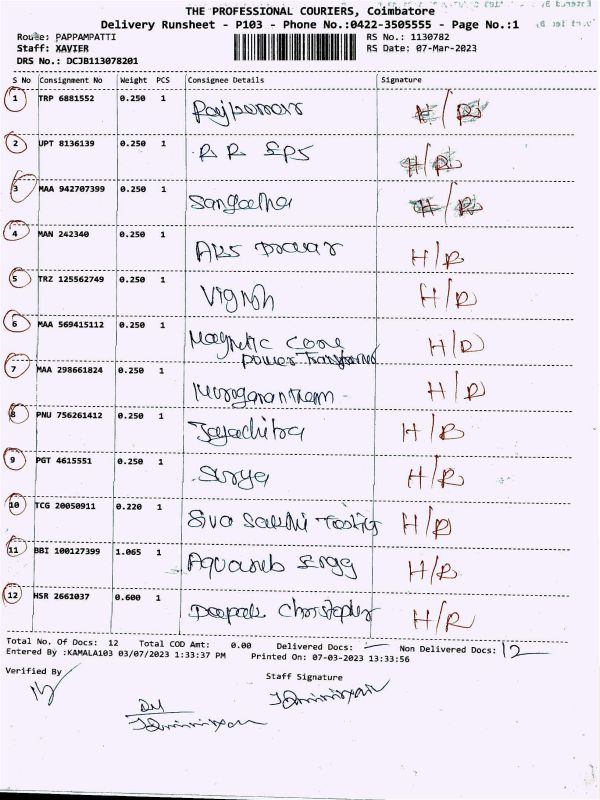 THE PROFESSIONAL COURIERS, Coimbatore
Delivery Runsheet - P103 - Phone No.:0422-3505555 - Page No.:1
Route: PAPPAMPATTI RS No.: 1130782
Staff: XAVIER RS Date: 07-Mar-2023
DRS No.: DCJB113078201
S No Consignment No Weight PCS Consignee Details Signature
1 TRP 6881552 0.250 1 H/R
2 UPT 8136139 0.250 1 R R EPS H/R
3 MAA 942707399 0.250 1 Sangeetha H/R
4 MAN 242340 0.250 1 H/R
5 TRZ 125562749 0.250 1 Vignsh H/R
6 MAA 569415112 0.250 1 Magnetic Core H/R
Power
7 MAA 298661824 0.250 1 H/R
8 PNU 756261412 0.250 1 Jayachitra H/R
9 PGT 4615551 0.250 1 Surya H/R
10 TCG 20050911 0.220 1 Siva Sakthi H/R
11 BBI 100127399 1.065 1 Engg H/R
12 HSR 2661037 0.600 1 Deepak Christopher H/R
Total No. Of Docs: 12 Total COD Amt: 0.00 Delivered Docs: — Non Delivered Docs: 12
Entered By :KAMALA103 03/07/2023 1:33:37 PM Printed On: 07-03-2023 13:33:56
Verified By Staff Signature